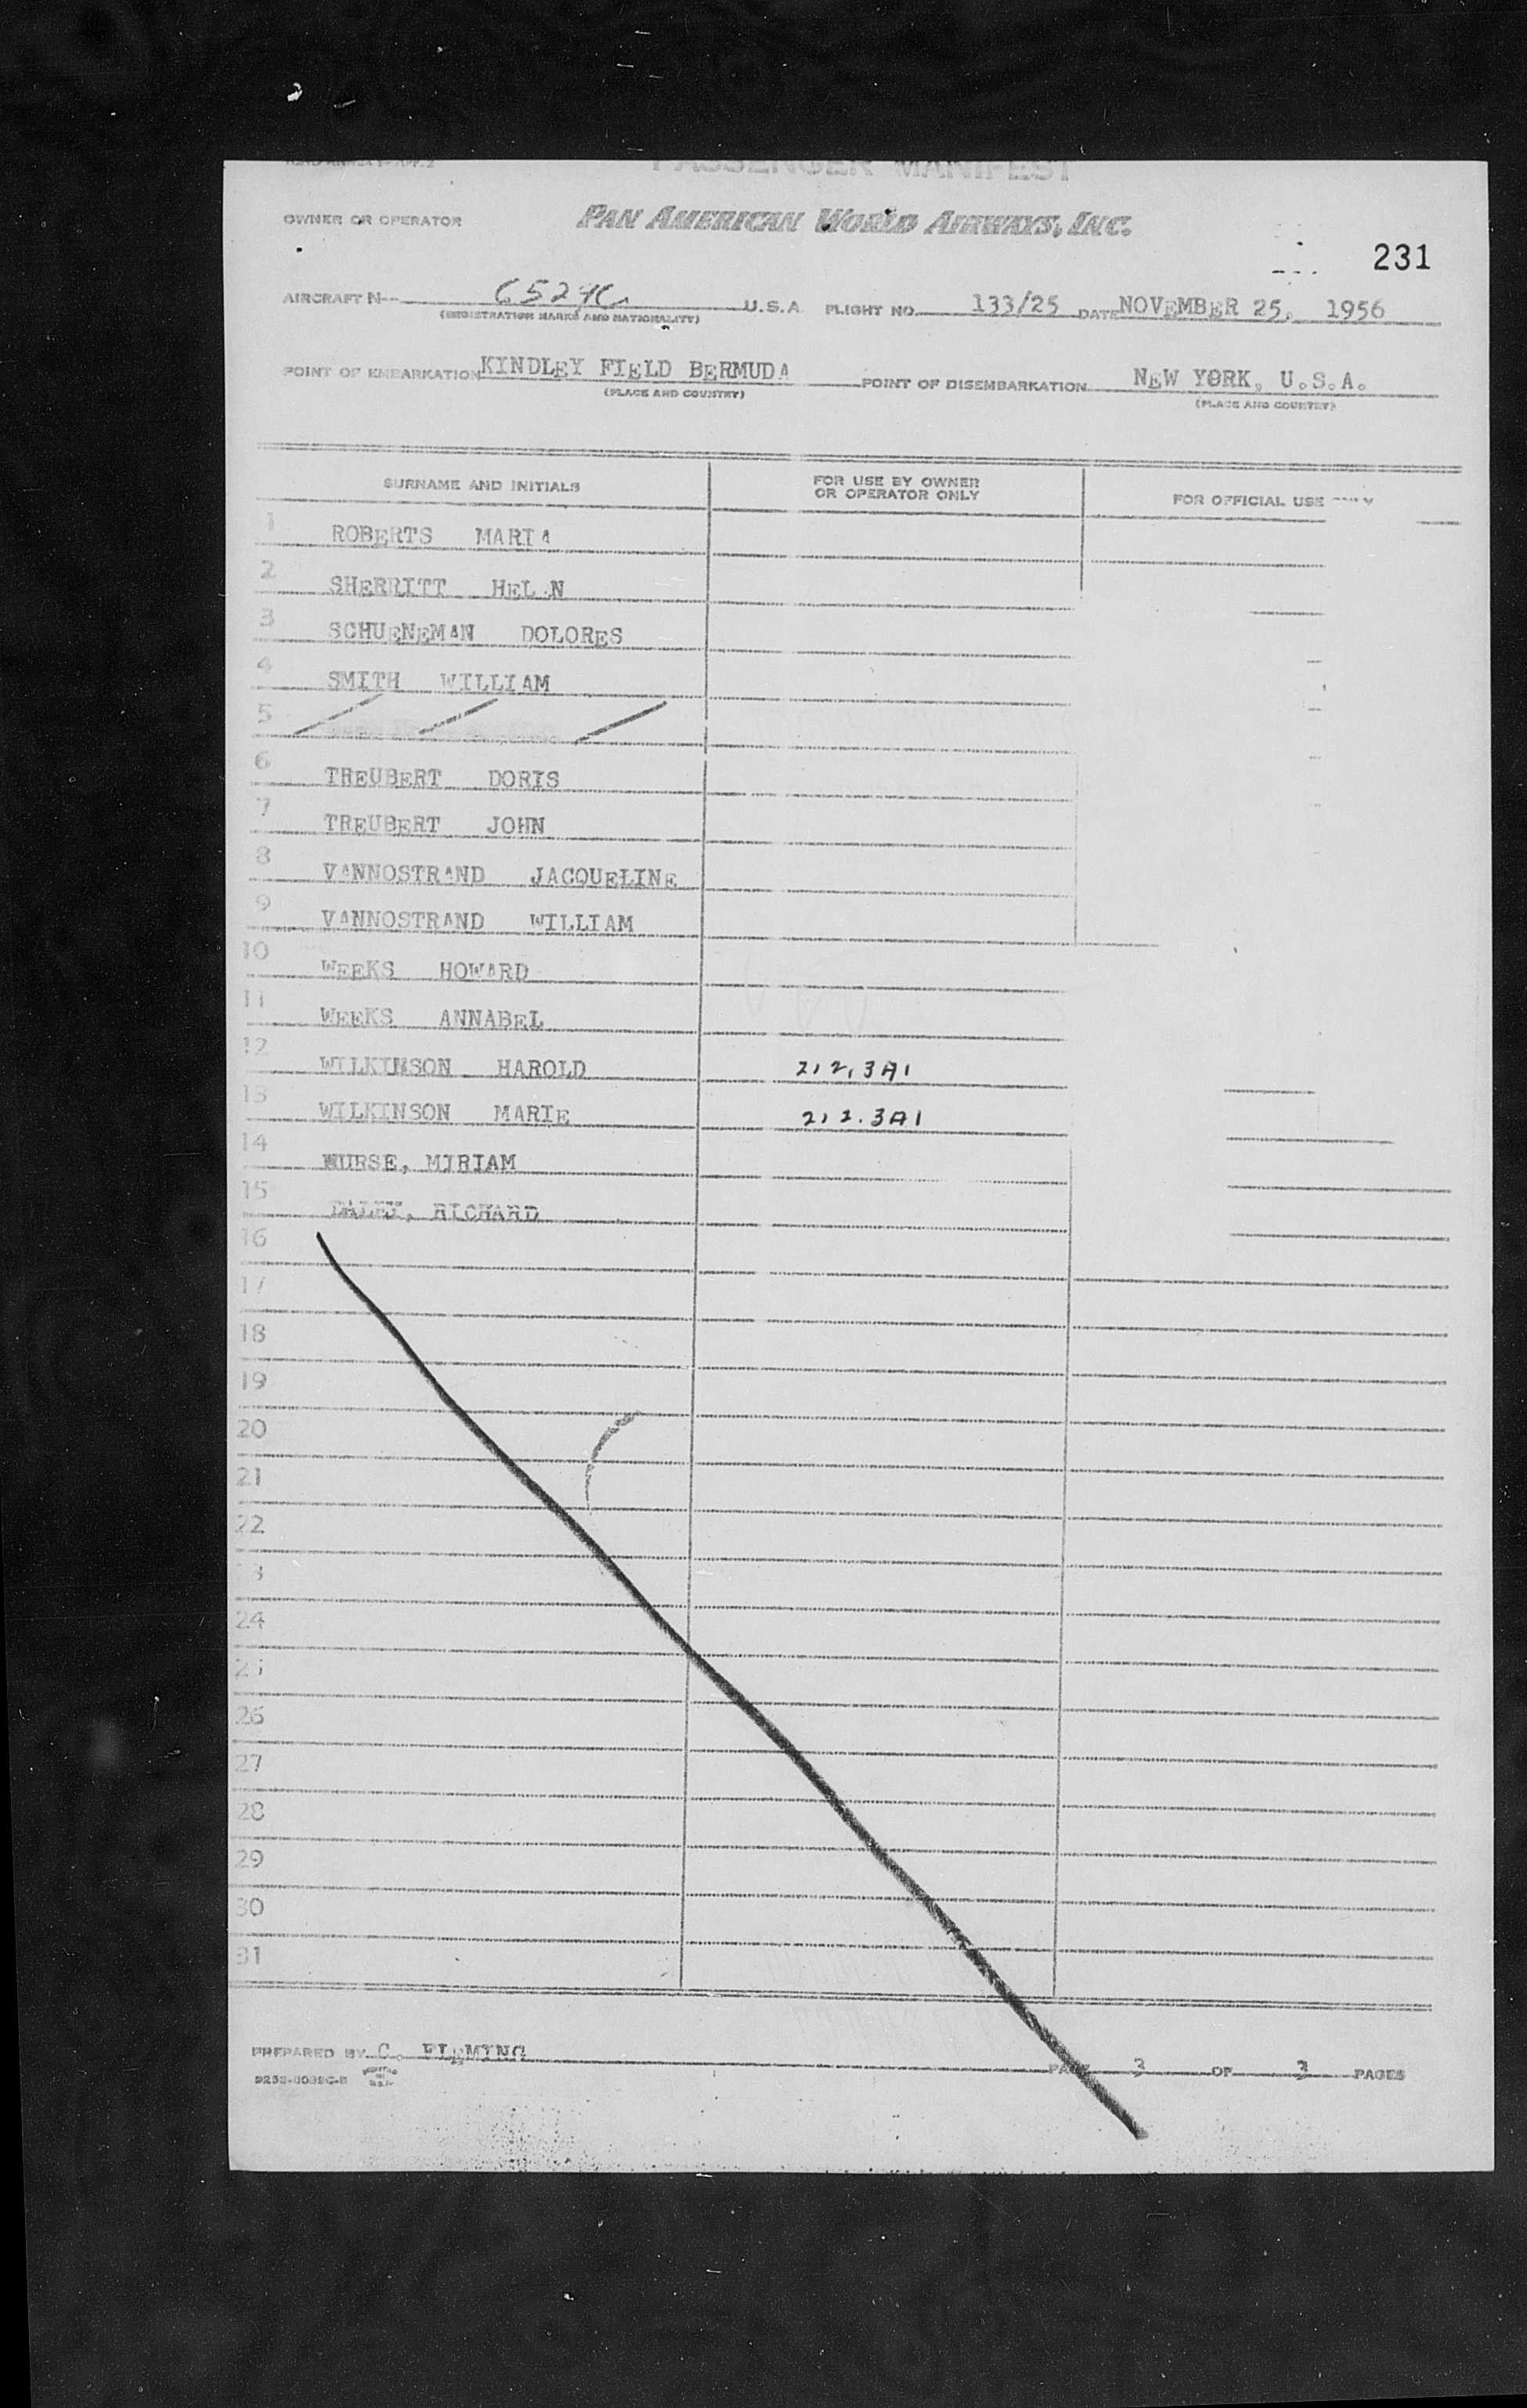 PASSENGER MANIFEST
OWNER OR OPERATOR PAN AMERICAN WORLD AIRWAYS, INC.
231
AIRCRAFT N-- U.S.A FLIGHT NO. 133/25 DATE NOVEMBER 25, 1956
(REGISTRATION MARKS AND NATIONALITY)
POINT OF EMBARKATION KINDLEY FIELD BERMUDA POINT OF DISEMBARKATION NEW YORK, U.S.A.
(PLACE AND COUNTRY) (PLACE AND COUNTRY)
SURNAME AND INITIALS FOR USE BY OWNER OR OPERATOR ONLY FOR OFFICIAL USE ONLY
1 ROBERTS MARIA
2 SHERRITT HEL N
3 SCHUENEMAN DOLORES
4 SMITH WILLIAM
5
6 TREUBERT DORIS
7 TREUBERT JOHN
8 VANNOSTRAND JACQUELINE
9 VANNOSTRAND WILLIAM
10 WEEKS HOWARD
11 WEEKS ANNABEL
12 WILKINSON HAROLD 212.3A1
13 WILKINSON MARIE 212.3A1
14 WURSE, MIRIAM
15 RICHARD
16
17
18
19
20
21
22
23
24
25
26
27
28
29
30
31
PREPARED BY C. FLEMING PAGE 3 OF 3 PAGES
PRINTED IN U.S.A.